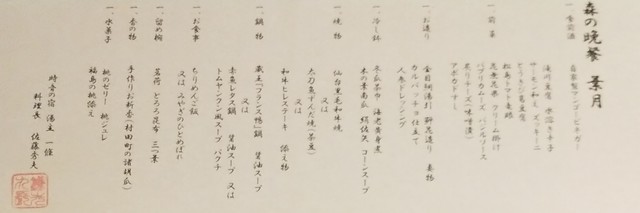 森の晩餐 葉月
一、食前酒
自家製アンダービネガー
一、前菜
滝川豆腐 水溶き辛子
サーモン和え ズッキーニ
とうもろこし葛豆腐
松島トマト素麺
昆布 クリーム掛け
パプリカムース バジルソース
炙りチーズ(味噌漬)
アボカドすし
一、お造り
金目鯛湯引 野菜造り 妻物
カルパッチョ仕立て
人参ドレッシング
一、冷し鉢
冬瓜茶巾 海老黄身煮
木の葉南瓜 絹佐久 コーンスープ
一、焼物
仙台黒毛和牛焼
又は
太刀魚ずんだ焼(茶豆)
又は
和牛ヒレステーキ 添え物
一、鍋物
蔵王「フランス鴨」鍋 醤油スープ 又は
赤魚レタス鍋 醤油スープ 又は
トムヤンクン風スープ パクチー
一、お食事
ちりめんご飯
又は みやぎのひとめぼれ
一、留め椀
茗荷 とろろ昆布 三つ葉
一、香の物
手作りお新香(村田町の諸胡瓜)
一、水菓子
桃のゼリー 桃ジュレ
福島の桃添え
時音の宿 湯主 一條
料理長 佐藤秀夫